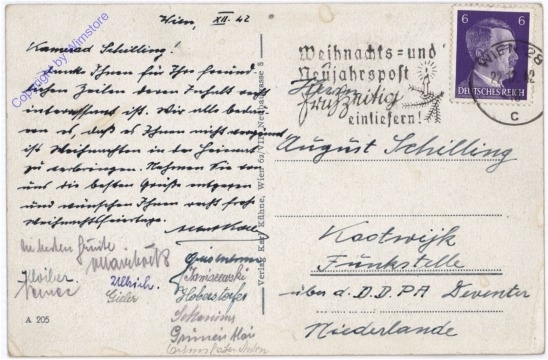 Wien, XII. 42
Kamerad Schilling!
Danke Ihnen für Ihre freund-
lichen Zeilen deren Inhalt recht
interessant ist. Wir alle bedau-
ern es, daß es Ihnen nicht vergönnt
ist Weihnachten in der Heimat
zu verbringen. Nehmen Sie von
uns die besten Grüße entgegen
und wünschen Ihnen recht frohe
Weihnachtsfeiertage.
die besten Grüße
Kloiber
Ullrich.
Gieler
Janiszewski
Haberstofer
A 205
Verlag Karl Kühne, Wien 62/VII, Neubaugasse 8
Weihnachts=und
Neujahrspost
frühzeitig
einliefern!
6 6
DEUTSCHES REICH
WIEN
C
Herrn
August Schilling
Kootwijk
Funkstelle
über d. D.D.P.A Deventer
Niederlande
Copyright by Wimstore